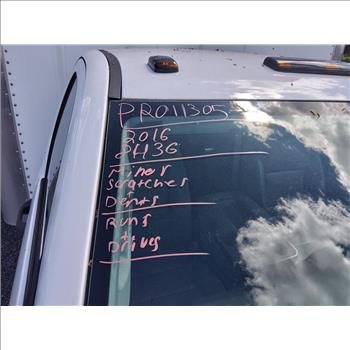 PRO11305
2016
2H3G
Minor
scratches
+
Dents
Runs
+
Drives